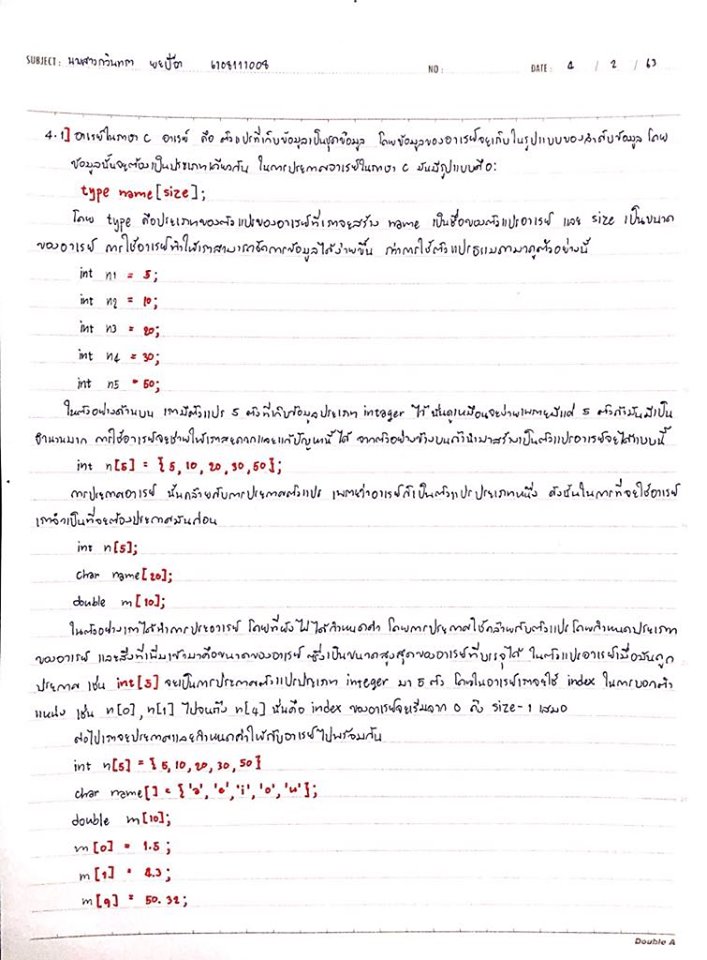 SUBJECT: นางสาวกวินทรา พยปัต 6108111008 NO: DATE: 4 / 2 / 63
4.1] อาเรย์ในภาษา C อาเรย์ คือ ตัวแปรที่เก็บข้อมูลเป็นชุดข้อมูล โดยข้อมูลของอาเรย์จะเก็บในรูปแบบของลำดับข้อมูล โดย
ข้อมูลนั้นจะต้องเป็นประเภทเดียวกัน ในการประกาศอาเรย์ในภาษา C มันมีรูปแบบคือ:
type name[size];
โดย type คือประเภทของตัวแปรของอาเรย์ที่เราจะสร้าง name เป็นชื่อของตัวแปรอาเรย์ และ size เป็นขนาด
ของอาเรย์ การใช้อาเรย์ทำให้เราสามารถจัดการข้อมูลได้ง่ายขึ้น กว่าการใช้ตัวแปรธรรมดามาดูตัวอย่างนี้
int n1 = 5;
int n2 = 10;
int n3 = 20;
int n4 = 30;
int n5 = 50;
ในตัวอย่างด้านบน เรามีตัวแปร 5 ตัวที่เก็บข้อมูลประเภท integer ไว้ นั่นดูเหมือนจะง่ายเพราะมีแค่ 5 ตัวถ้ามันมีเป็น
จำนวนมาก การใช้อาเรย์จะช่วยให้เราสะดวกและแก้ปัญหานี้ได้ จากตัวอย่างข้างบนถ้านำมาสร้างเป็นตัวแปรอาเรย์จะได้แบบนี้
int n[5] = {5, 10, 20, 30, 50};
การประกาศอาเรย์ นั้นคล้ายกับการประกาศตัวแปร เพราะว่าอาเรย์ก็เป็นตัวแปรประเภทหนึ่ง ดังนั้นในการที่จะใช้อาเรย์
เราจำเป็นที่จะต้องประกาศมันก่อน
int n[5];
char name[20];
double m[10];
ในตัวอย่างเราได้ทำการประอาเรย์ โดยที่ยังไม่ได้กำหนดค่า โดยการประกาศใช้คล้ายกับตัวแปร โดยกำหนดประเภท
ของอาเรย์ และสิ่งที่เพิ่มเข้ามาคือขนาดของอาเรย์ ซึ่งเป็นขนาดสูงสุดของอาเรย์ที่บรรจุได้ ในตัวแปรอาเรย์เมื่อมันถูก
ประกาศ เช่น int[5] จะเป็นการประกาศตัวแปรประเภท integer มา 5 ตัว โดยในอาเรย์เราจะใช้ index ในการบอกตำ
แหน่ง เช่น n[0], n[1] ไปจนถึง n[4] นั่นคือ index ของอาเรย์จะเริ่มจาก 0 ถึง size-1 เสมอ
ต่อไปเราจะประกาศและกำหนดค่าให้กับอาเรย์ไปพร้อมกัน
int n[5] = {5, 10, 20, 30, 50}
char name[] = {'a', 'e', 'i', 'o', 'u'};
double m[10];
m[0] = 1.5;
m[1] = 4.3;
m[9] = 50.32;
Double A